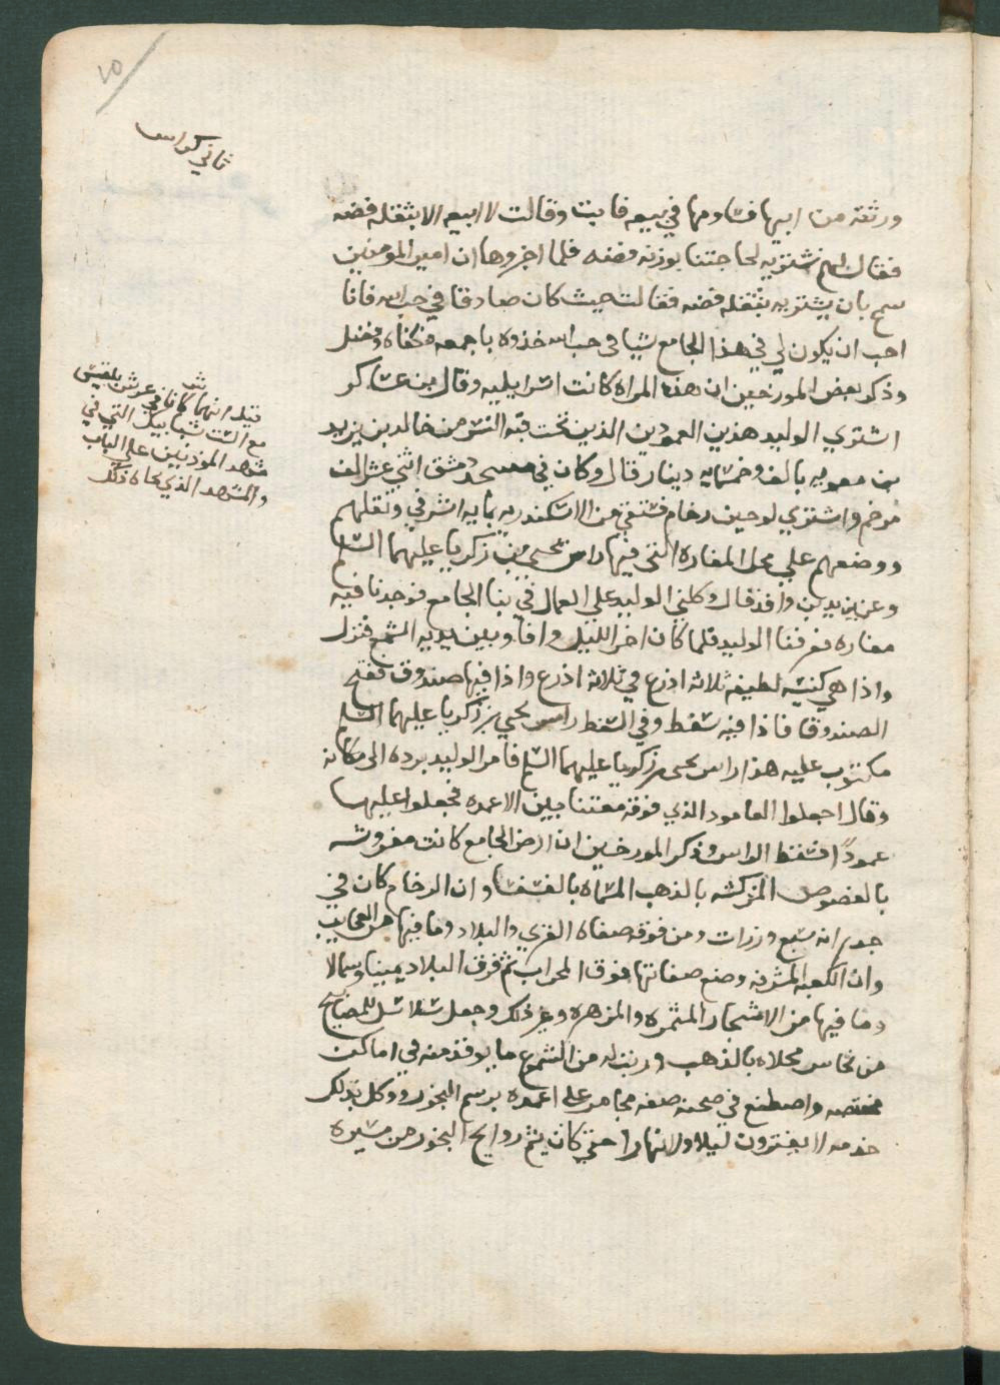 ١٥
ثاني كراس
ورثته من ابيها فساومها في بيعه فابت وقالت لا ابيعه الا بثقله فضه
فقال لهم نشتريه لحاجتنا بوزنه فضه فلما اخبروها ان امير المومنين
سمح بان يشتريه بثقله فضه فقالت حيث كان صادقا في حب الله فانا
احب ان يكون لي في هذا الجامع شيا في حب الله خذوه باجمعه
وذكر بعض المورخين ان هذه المراه كانت اسرايليه وقال بن عساكر
اشتري الوليد هذين العمودين الذين تحت قبة النسر من خالد بن يزيد
بن معويه بالف وخمسمايه دينار قال وكان في مسجد دمشق اثني عشر الف
مرخم واشتري لوحين رخام من الاسكندريه بمايه اشرفي ونقلهم
ووضعهم علي محل المغاره التي فيها راس يحيى بن زكريا عليهما السلام
وعن يزيد بن واقد قال وكلني الوليد علي العمال في بنا الجامع فوجدنا فيه
مغاره فعرفنا الوليد فلما كان اخر الليل وافا وبين يديه الشمع فنزل
واذا هي كنيسه لطيفه ثلاثه اذرع في ثلاثه اذرع واذا فيها صندوق ففتح
الصندوق فاذا فيه سفط وفي السفط راس يحيى بن زكريا عليهما السلام
مكتوب عليه هذا راس يحيى بن زكريا عليهما السلام فامر الوليد برده الى مكانه
وقال اجعلوا العامود الذي فوقه بين الاعمده فجعلوا عليها
عموداً الراس وذكر المورخين ان ارض الجامع كانت مفروشه
بالفصوص المزركشه بالذهب المسماه بالفسيفسا وان الرخام كان في
جدرانه سبع وزرات ومن فوقه صفاة القري والبلاد وما فيها من العجايب
وان الكعبه المشرفه وضع صفاتها فوق المحراب ثم فرق البلاد يمينا وشمالا
وما فيها من الاشجار المثمره والمزهره وغير ذلك وجعل سلاسل المصابيح
من نحاس محلاه بالذهب ورتب له من الشموع ما يوقد منه في اماكن
مختصه واصطنع في صحنه صفه مجامر على اعمده برسم البخور ووكل بذلك
خدمه لا يفترون ليلا ولا نهارا حتي كان يشم روايح البخور من مسيرة
قيل انهما كانا في عرش بلقيس
مع الست شبابيك التي في
مشهد الموذنين علي الباب
والمشهد الذي تجاه ذلك